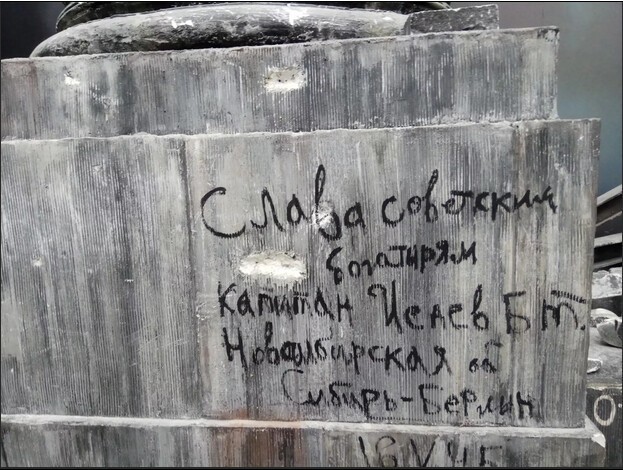 Слава советским
богатырям
Капитан Иенев Б.Т.
Новосибирская об
Сибирь-Берлин
16 V 45